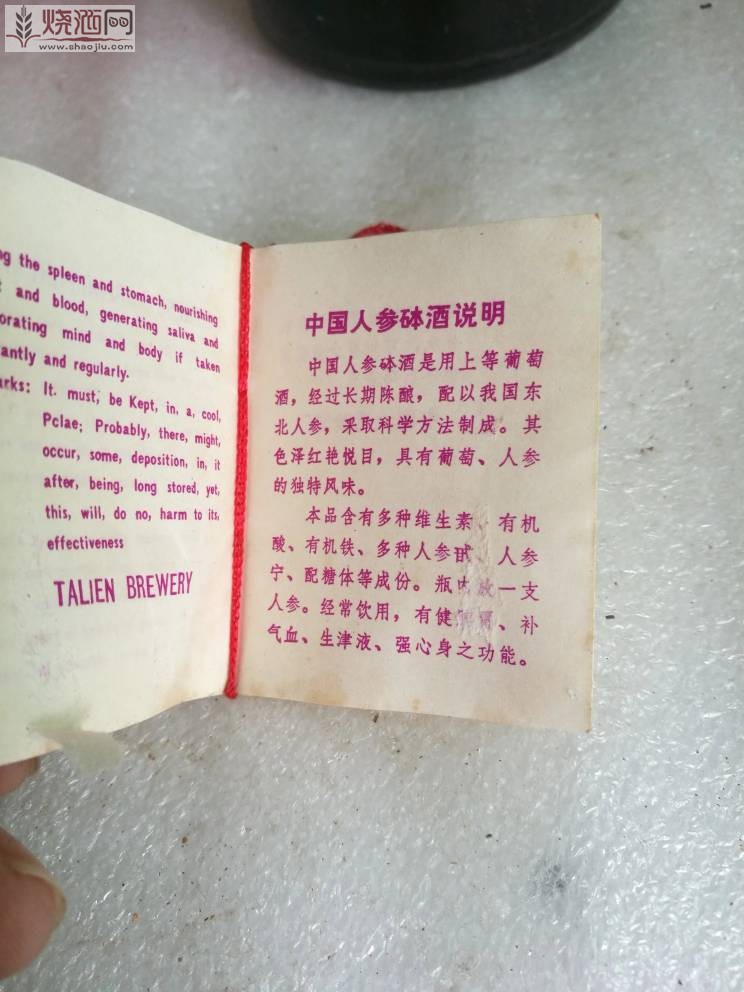 烧酒网
www.shaojiu.com
ng the spleen and stomach, nourishing
and blood, generating saliva and
orating mind and body if taken
antly and regularly.
arks: It. must, be Kept, in, a, cool,
Pclae; Probably, there, might,
occur, some, deposition, in, it
after, being, long stored, yet,
this, will, do no, harm to its,
effectiveness
TALIEN BREWERY
中国人参砵酒说明
中国人参砵酒是用上等葡萄
酒，经过长期陈酿，配以我国东
北人参，采取科学方法制成。其
色泽红艳悦目，具有葡萄、人参
的独特风味。
本品含有多种维生素、有机
酸、有机铁、多种人参甙、人参
宁、配糖体等成份。瓶内放一支
人参。经常饮用，有健、补
气血、生津液、强心身之功能。